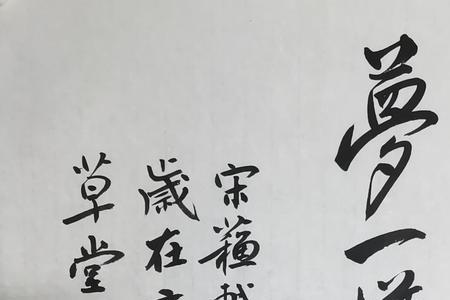 夢一
宋蘓
歲在
草堂